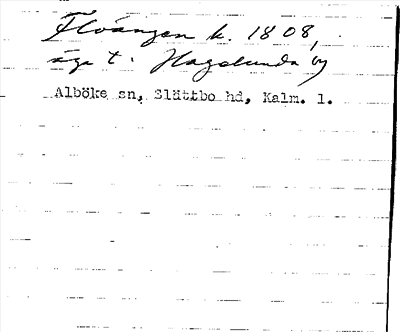 Flvången k. 1808,
äga t. Hagelunda by
Alböke sn, Slättbo hd, Kalm. l.